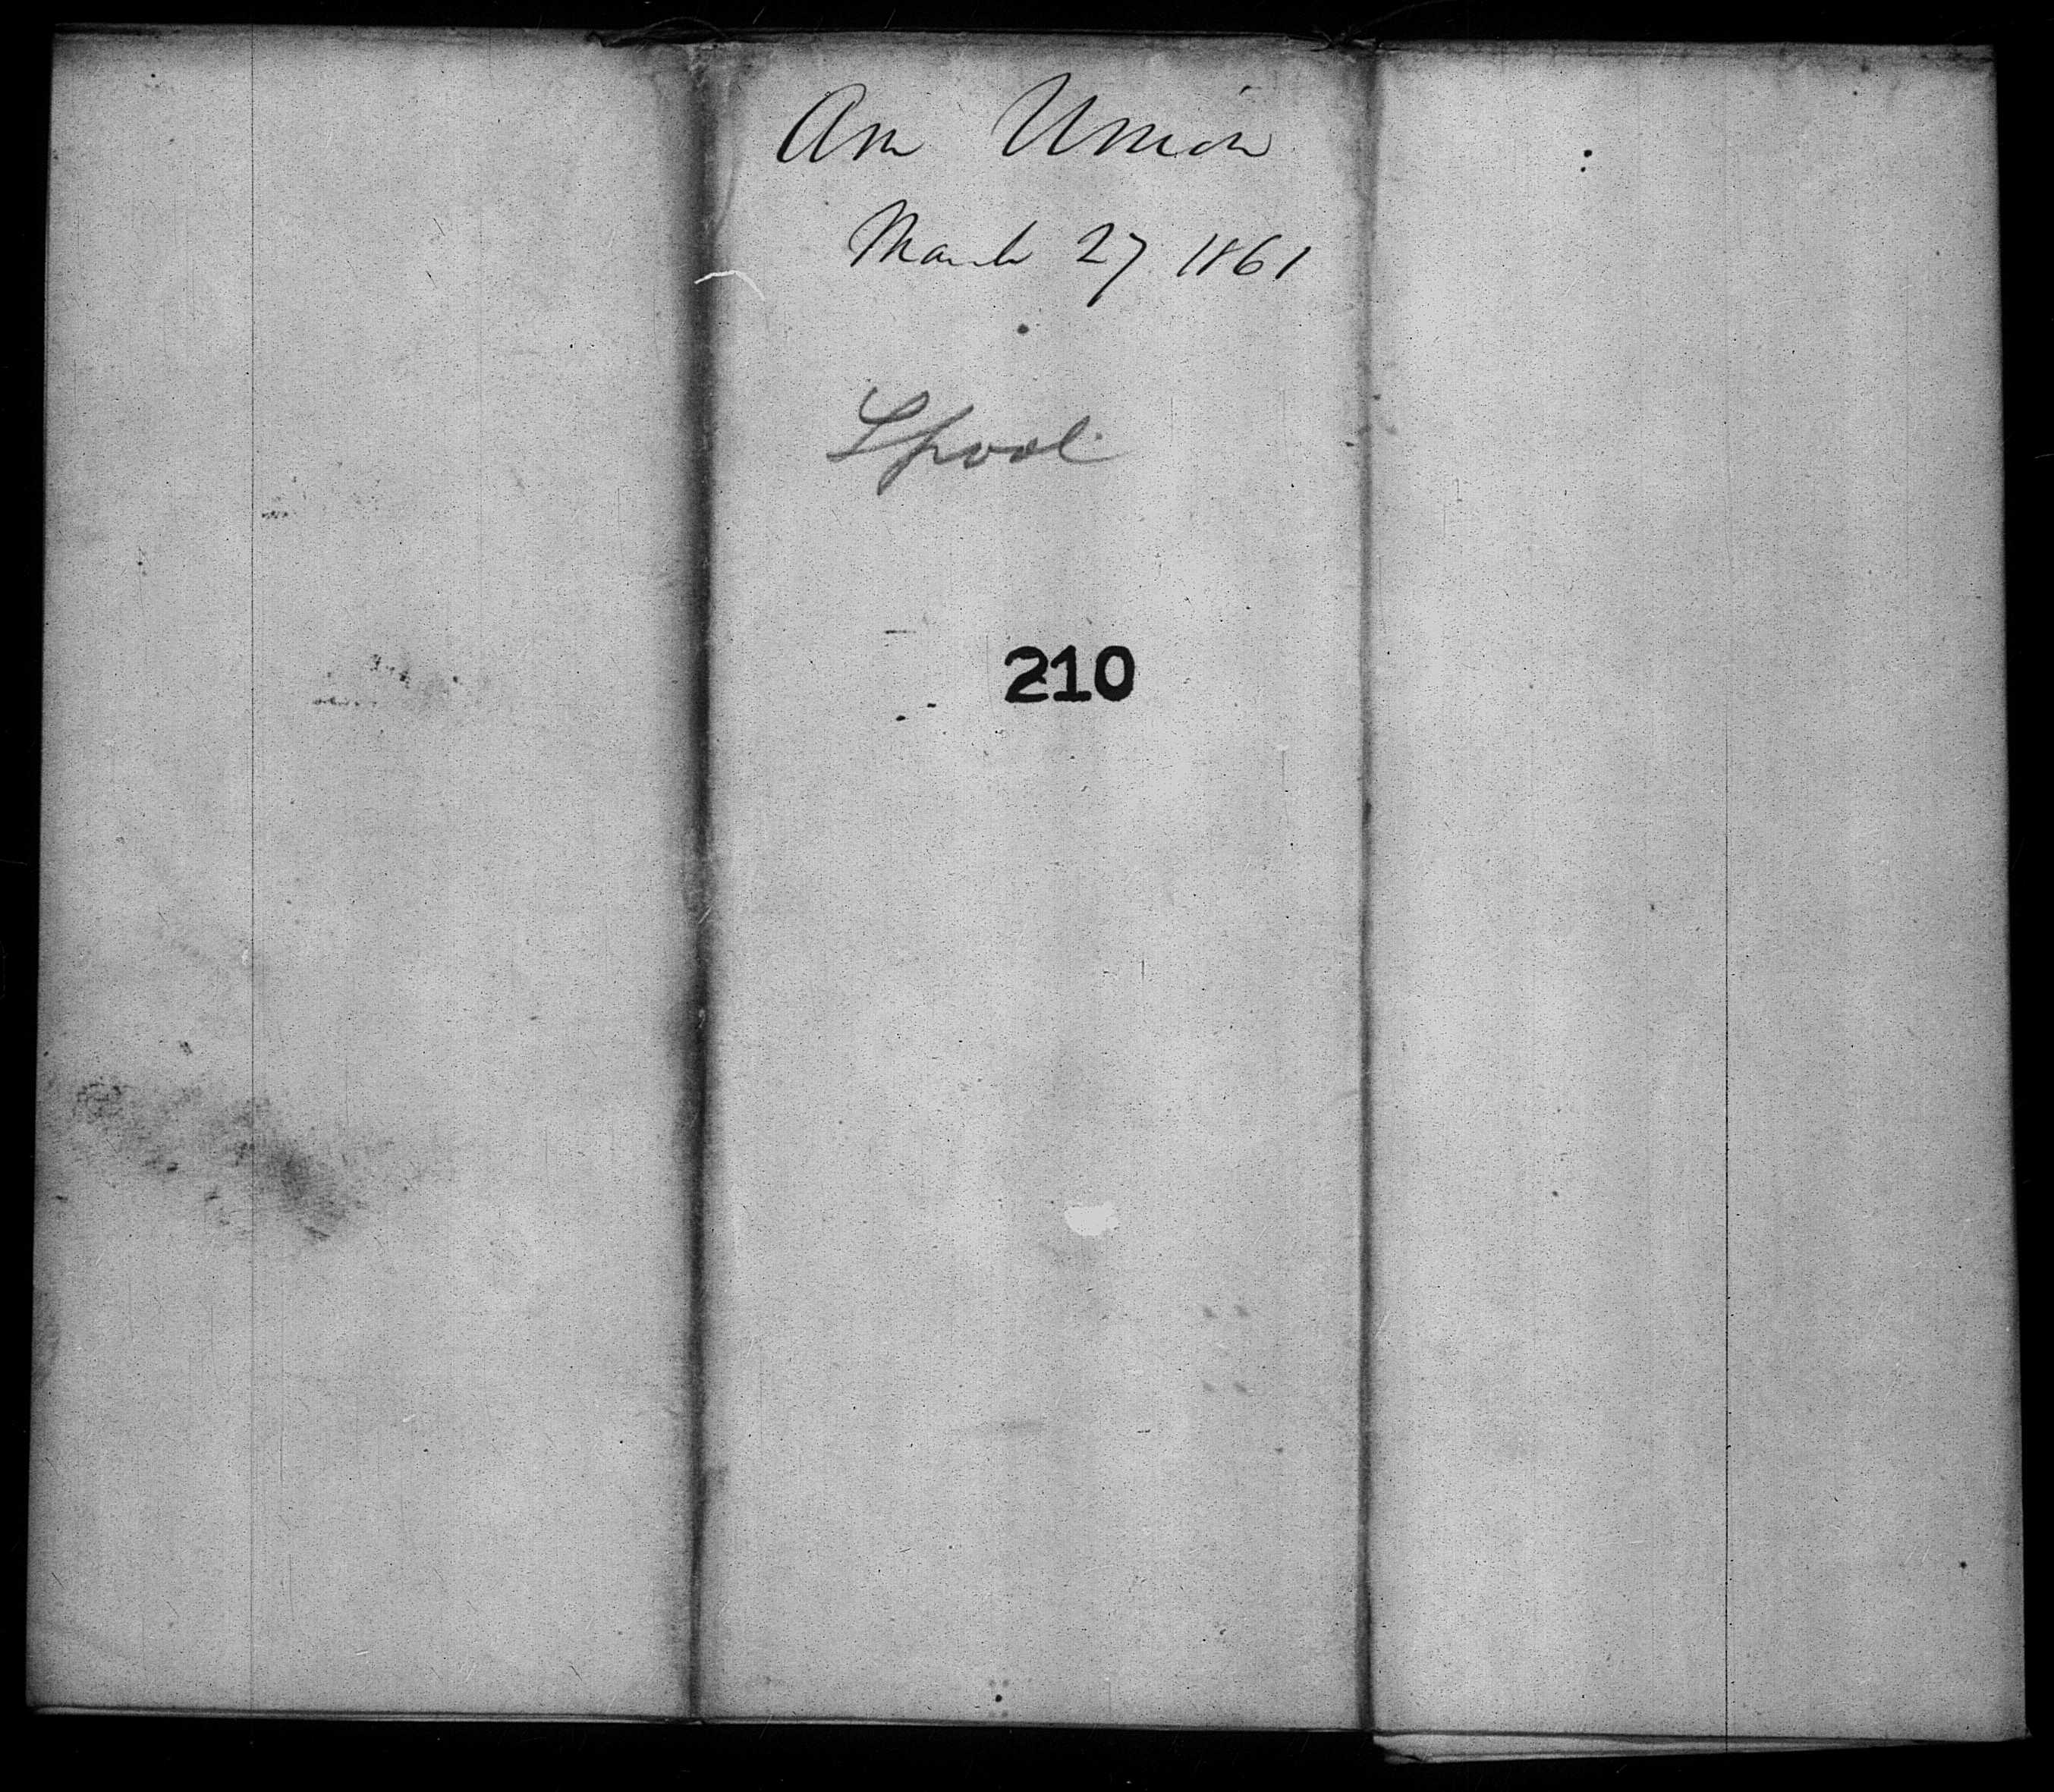 Am Union
March 27 1861
Lpool
210